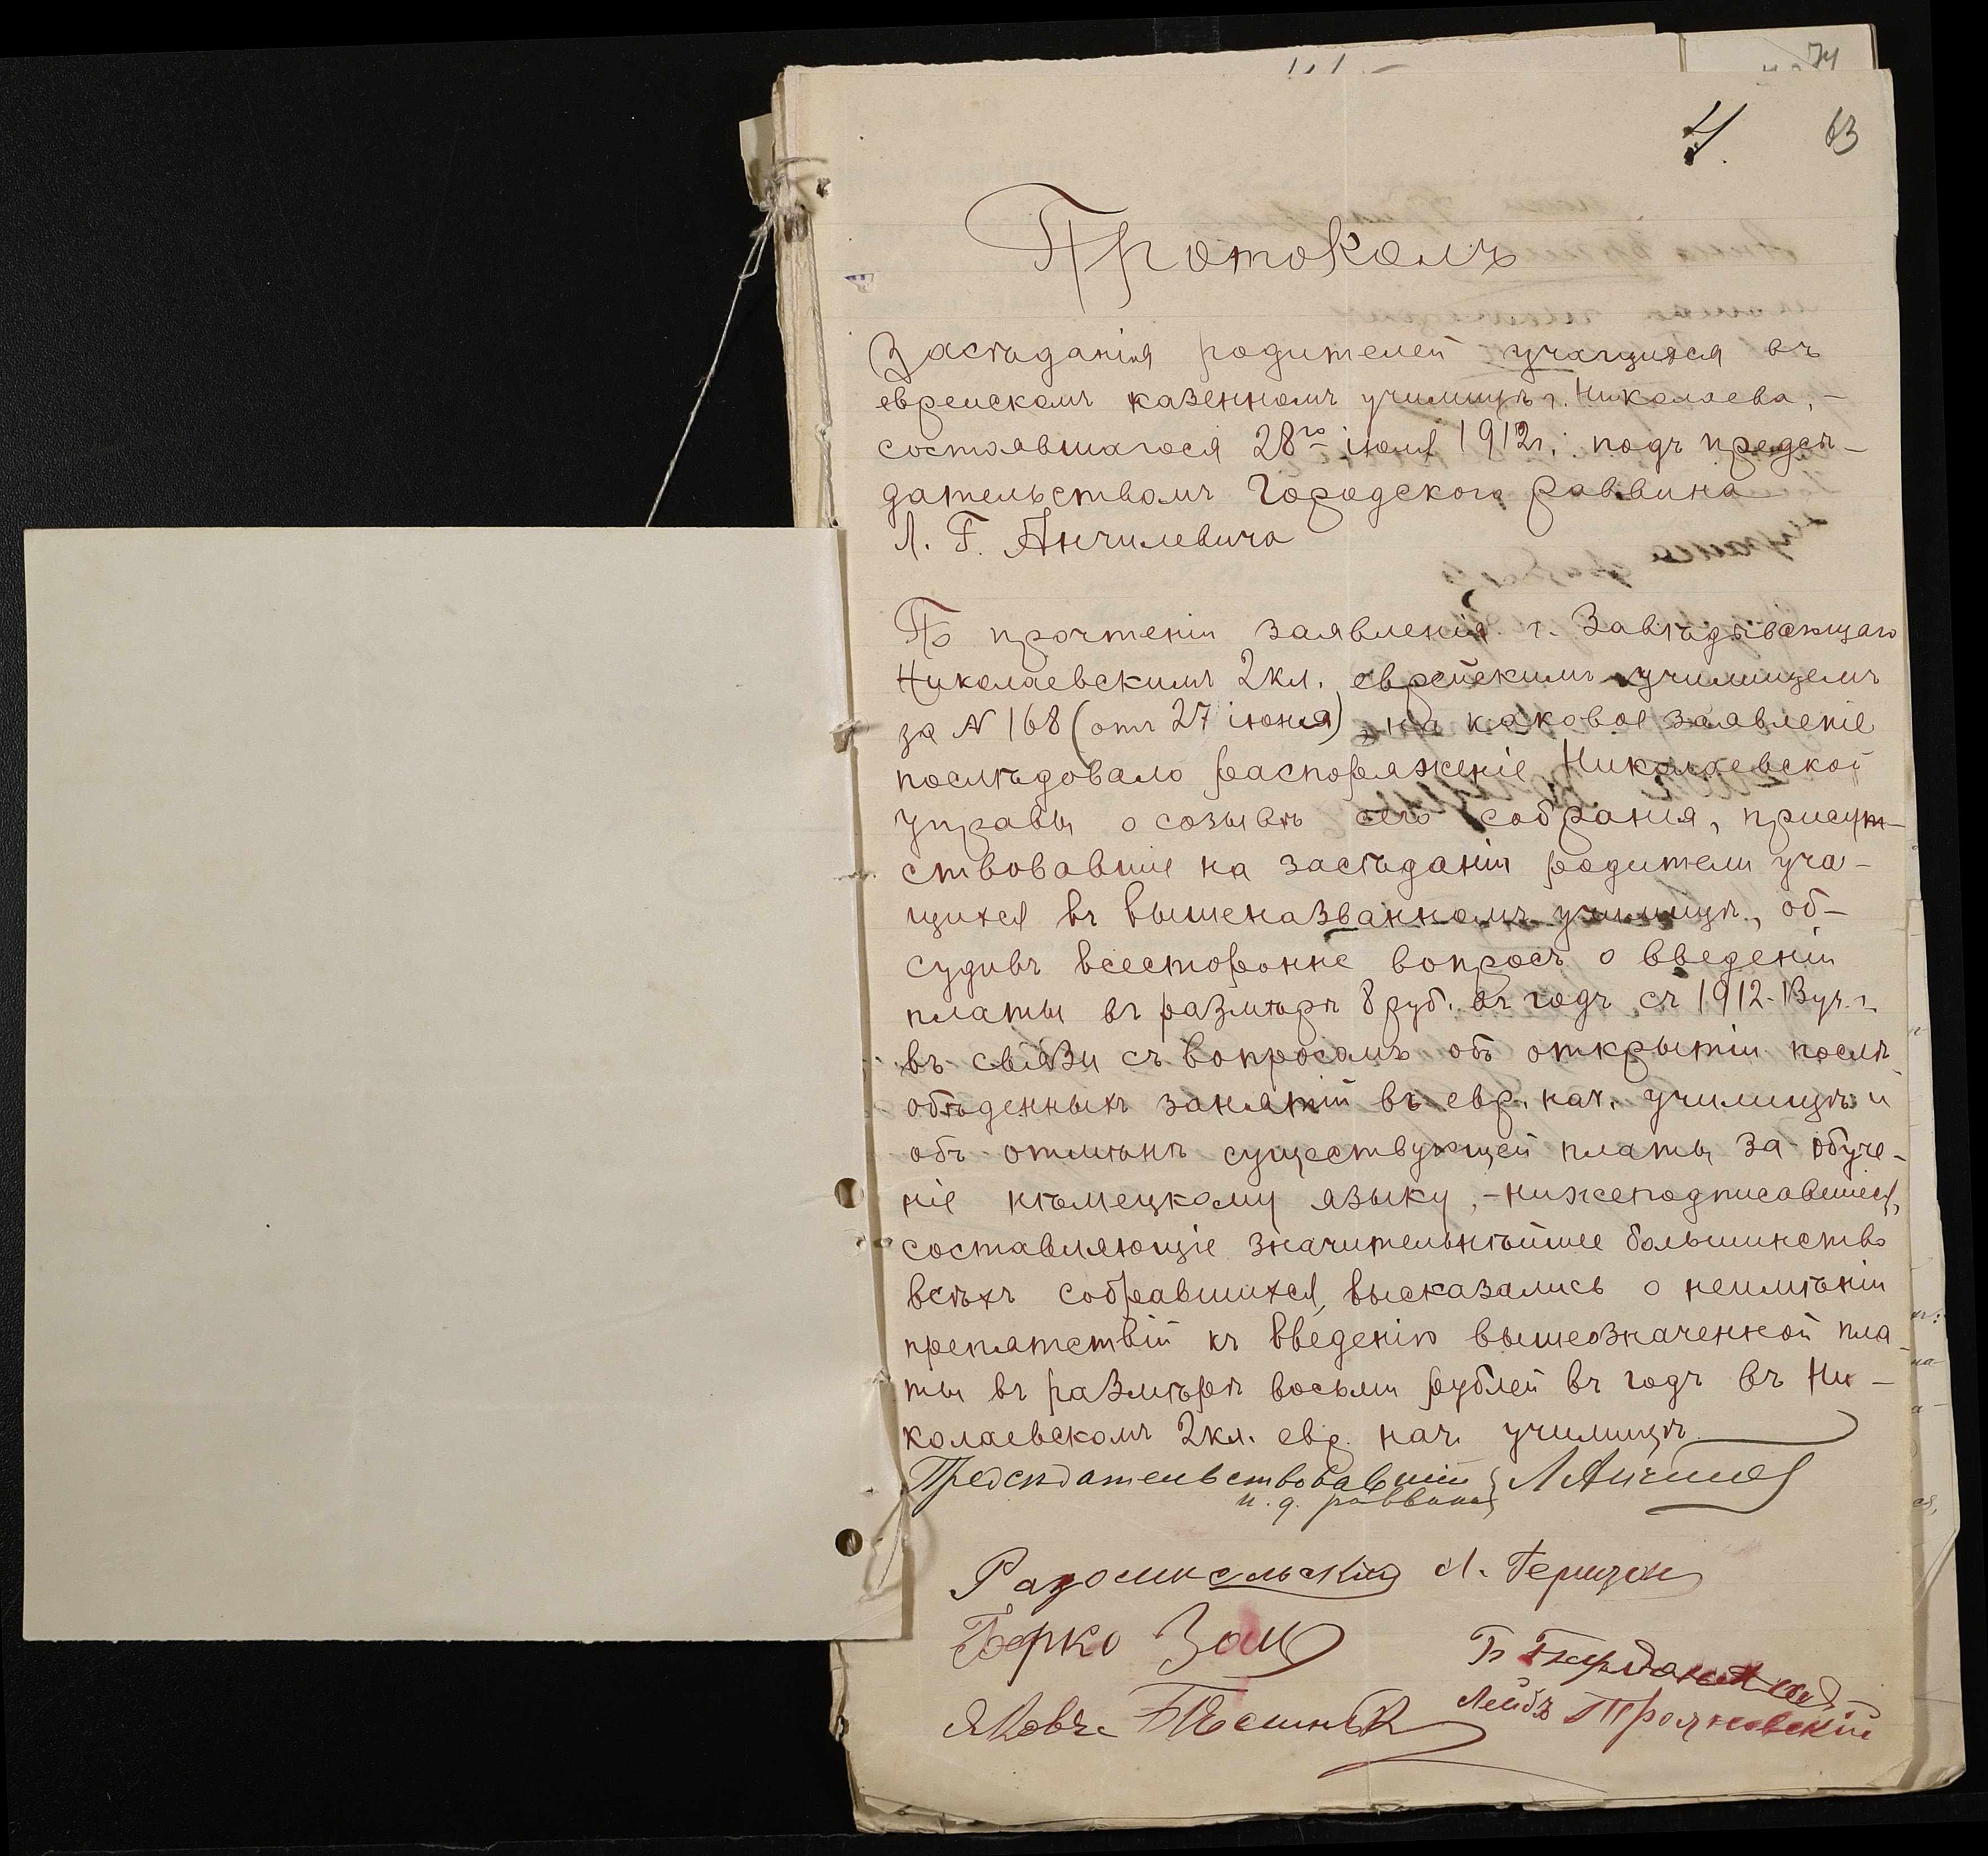 74
4.
63
Протоколъ
Засѣданія родителей учащихся въ
еврейскомъ казенномъ училищѣ г. Николаева, –
состоявшагося 28го іюля 1912 г. подъ предсѣ–
дательствомъ Городского раввина
Л. Г. Анчилевича
По прочтеніи заявленія г. Завѣдывающаго
Николаевскимъ 2 кл. еврейскимъ училищемъ
за N 168 (отъ 27 іюня), на каковое заявленіе
послѣдовало распоряженіе Николаевской
Управы о созывѣ сего собранія, присут–
ствовавшіе на засѣданіи родители уча–
щихся въ вышеназванномъ училищѣ, об–
судивъ всесторонне вопросъ о введеніи
платы въ размѣрѣ 8 руб. въ годъ съ 1912-13 уч. г.
въ связи съ вопросомъ объ открытіи послѣ
обѣденныхъ занятій въ евр. нач. училищѣ и
объ отмѣнѣ существующей платы за обуче–
ніе нѣмецкому языку, – нижеподписавшіеся,
составляющіе значительнѣйшее большинство
всѣхъ собравшихся, высказались о неимѣніи
препятствій къ введенію вышеозначенной пла–
ты въ размѣрѣ восьми рублей въ годъ въ Ни–
колаевскомъ 2 кл. евр. нач. училищѣ.
Предсѣдательствовавшій Л Анчилев
и. д. раввина
Радомисельскій Л. Герцзон
Берко Зац
Б
Лейбъ Трояновскій
Яковъ